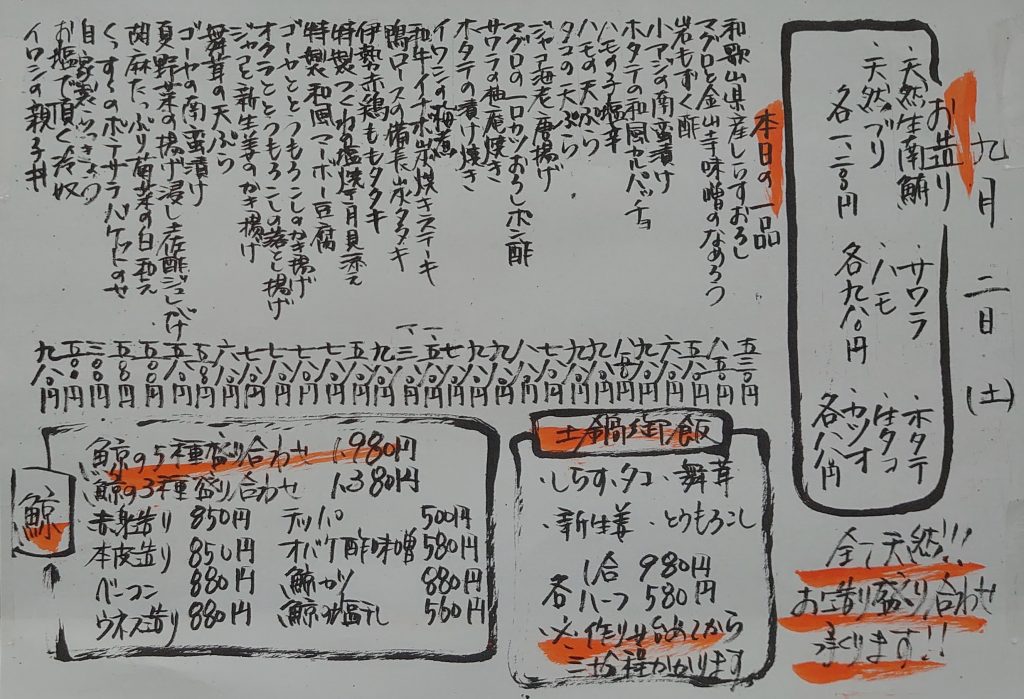 九月 二日 (土)
お造り
・天然生南鮪
・天然ブリ
各一、二八〇円
・サワラ
・ハモ
各九八〇円
・ホタテ
・生タコ
・カツオ
各八八〇円
全て天然!!!
お造り盛り合わせ
承ります!!
本日の一品
和歌山県産しらすおろし 五三〇円
マグロと金山寺味噌のなめろう 八五〇円
岩もずく酢 五八〇円
小アジの南蛮漬け 六八〇円
ホタテの和風カルパッチョ 九八〇円
ハモの子塩辛 八五〇円
ハモの天ぷら 九八〇円
タコの天ぷら 九八〇円
ジャコ海老唐揚げ 七八〇円
マグロの一口カツおろしポン酢 八八〇円
サワラの柚庵焼き 九八〇円
ホタテの漬け焼き 九八〇円
イワシの梅煮 七八〇円
和牛イチボ炭焼きステーキ 一、五八〇円
鴨ロースの備長炭タタキ 一、三八〇円
伊勢赤鶏ももタタキ 九八〇円
特製つくね塩焼き月見添え 五八〇円
特製和風マーボー豆腐 七八〇円
ゴーヤととうもろこしのかき揚げ 七八〇円
オクラととうもろこしの落とし揚げ 七八〇円
ジャコと新生姜のかき揚げ 七八〇円
舞茸の天ぷら 六八〇円
ゴーヤの南蛮漬け 五八〇円
夏野菜の揚げ浸し土佐酢ジュレがけ 五八〇円
胡麻たっぷり菊菜の白和え 五八〇円
ポテサラバケットのせ 五八〇円
自家製らっきょう 三八〇円
お塩で頂く冷奴 五〇〇円
イワシの親子丼 九八〇円
土鍋御飯
・しらす・タコ・舞茸
・新生姜・とうもろこし
各 1合 980円
ハーフ 580円
※作り始めてから
三十分程かかります
鯨
鯨の5種盛り合わせ 1,980円
鯨の3種盛り合わせ 1,380円
赤身造り 850円 テッパ 500円
本皮造り 850円 オバケ酢味噌 580円
ベーコン 880円 鯨カツ 880円
ウネス造り 880円 鯨の塩干し 560円